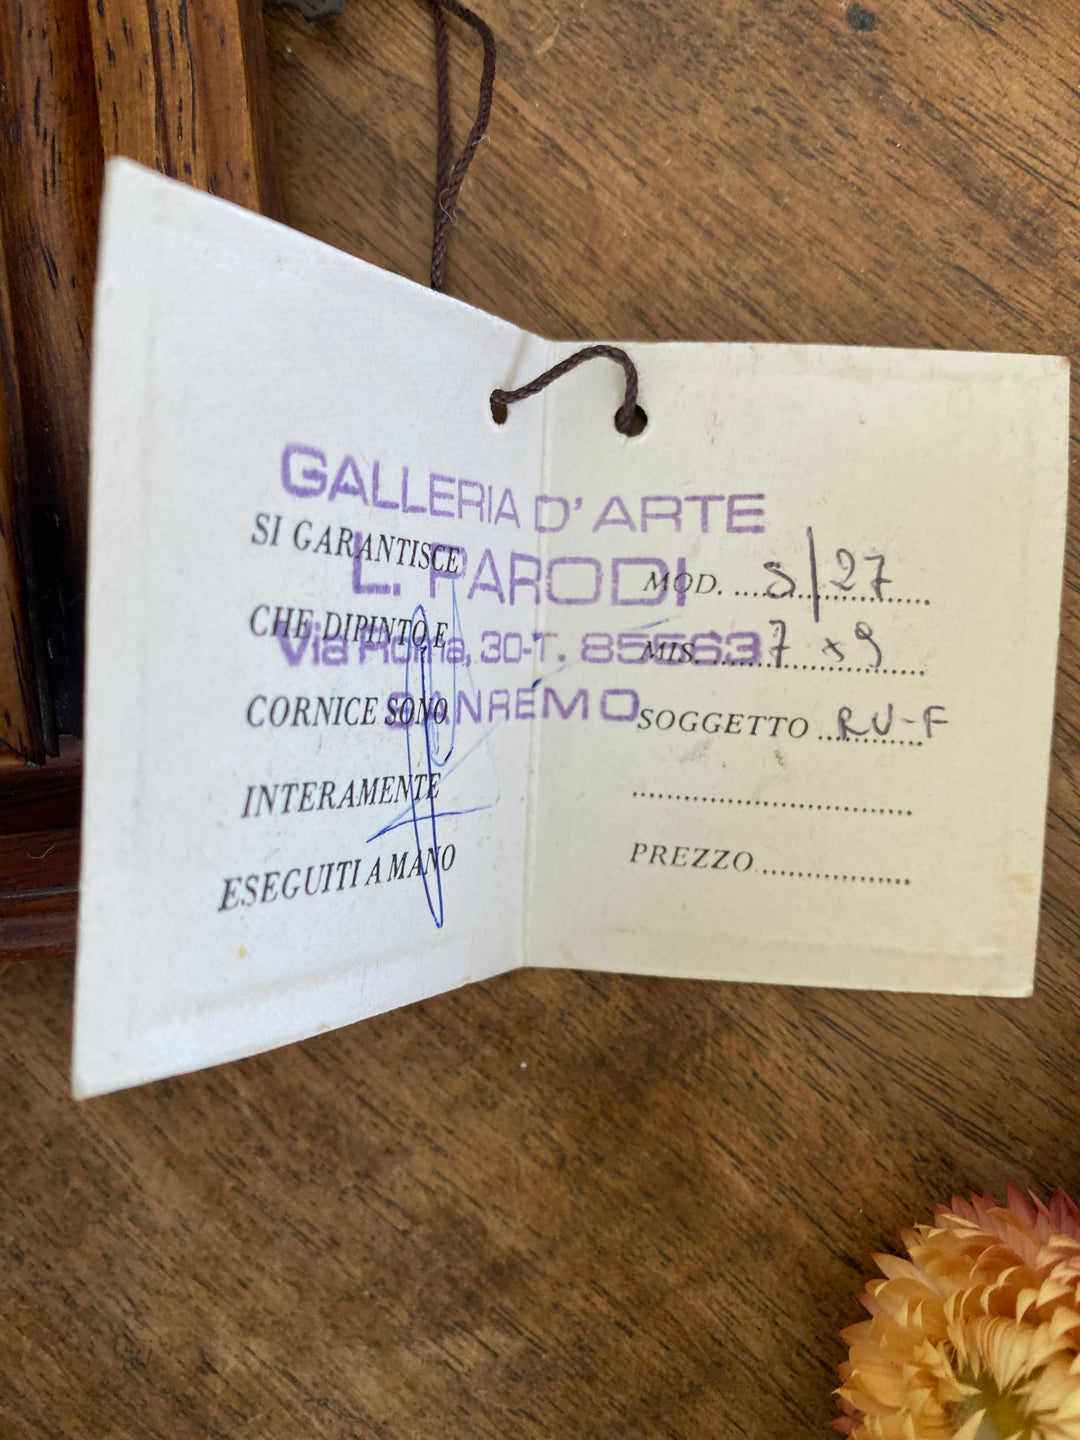 GALLERIA D'ARTE
L. PARODI
Via Roma, 30-T. 85563
SANREMO
SI GARANTISCE
CHE DIPINTO E
CORNICE SONO
INTERAMENTE
ESEGUITI A MANO
MOD. S/27
MIS. 7 x 9
SOGGETTO RU-F
PREZZO